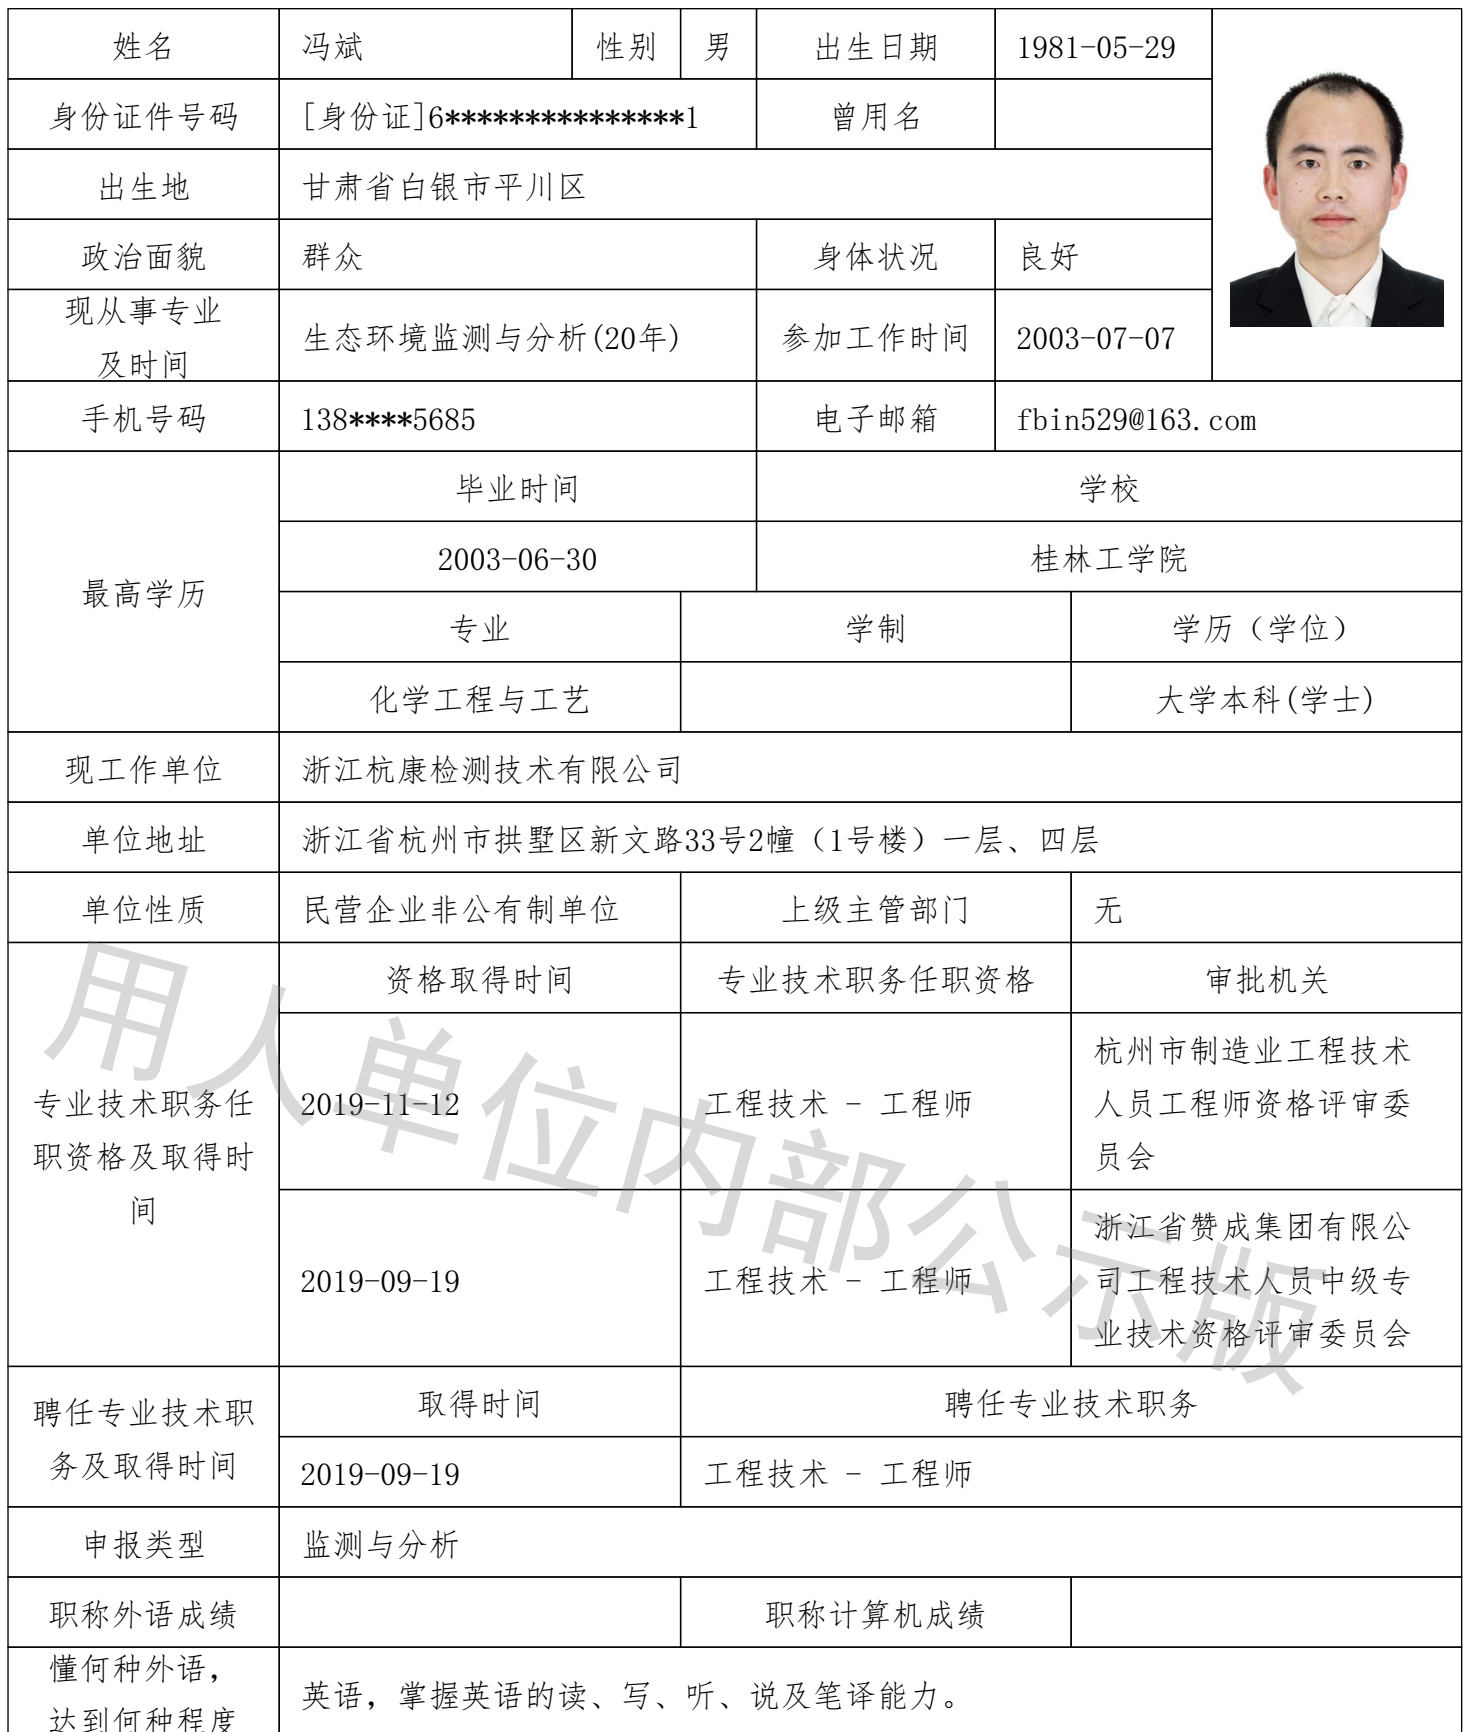 姓名 冯斌 性别 男 出生日期 1981-05-29
身份证件号码 [身份证]6***************1 曾用名
出生地 甘肃省白银市平川区
政治面貌 群众 身体状况 良好
现从事专业
及时间
生态环境监测与分析(20年) 参加工作时间 2003-07-07
手机号码 138****5685 电子邮箱 fbin529@163.com
最高学历
毕业时间 学校
2003-06-30 桂林工学院
专业 学制 学历（学位）
化学工程与工艺 大学本科(学士)
现工作单位 浙江杭康检测技术有限公司
单位地址 浙江省杭州市拱墅区新文路33号2幢（1号楼）一层、四层
单位性质 民营企业非公有制单位 上级主管部门 无
专业技术职务任
职资格及取得时
间
资格取得时间 专业技术职务任职资格 审批机关
2019-11-12 工程技术 - 工程师
杭州市制造业工程技术
人员工程师资格评审委
员会
2019-09-19 工程技术 - 工程师
浙江省赞成集团有限公
司工程技术人员中级专
业技术资格评审委员会
聘任专业技术职
务及取得时间
取得时间 聘任专业技术职务
2019-09-19 工程技术 - 工程师
申报类型 监测与分析
职称外语成绩 职称计算机成绩
懂何种外语，
达到何种程度
英语，掌握英语的读、写、听、说及笔译能力。
用人单位内部公示版